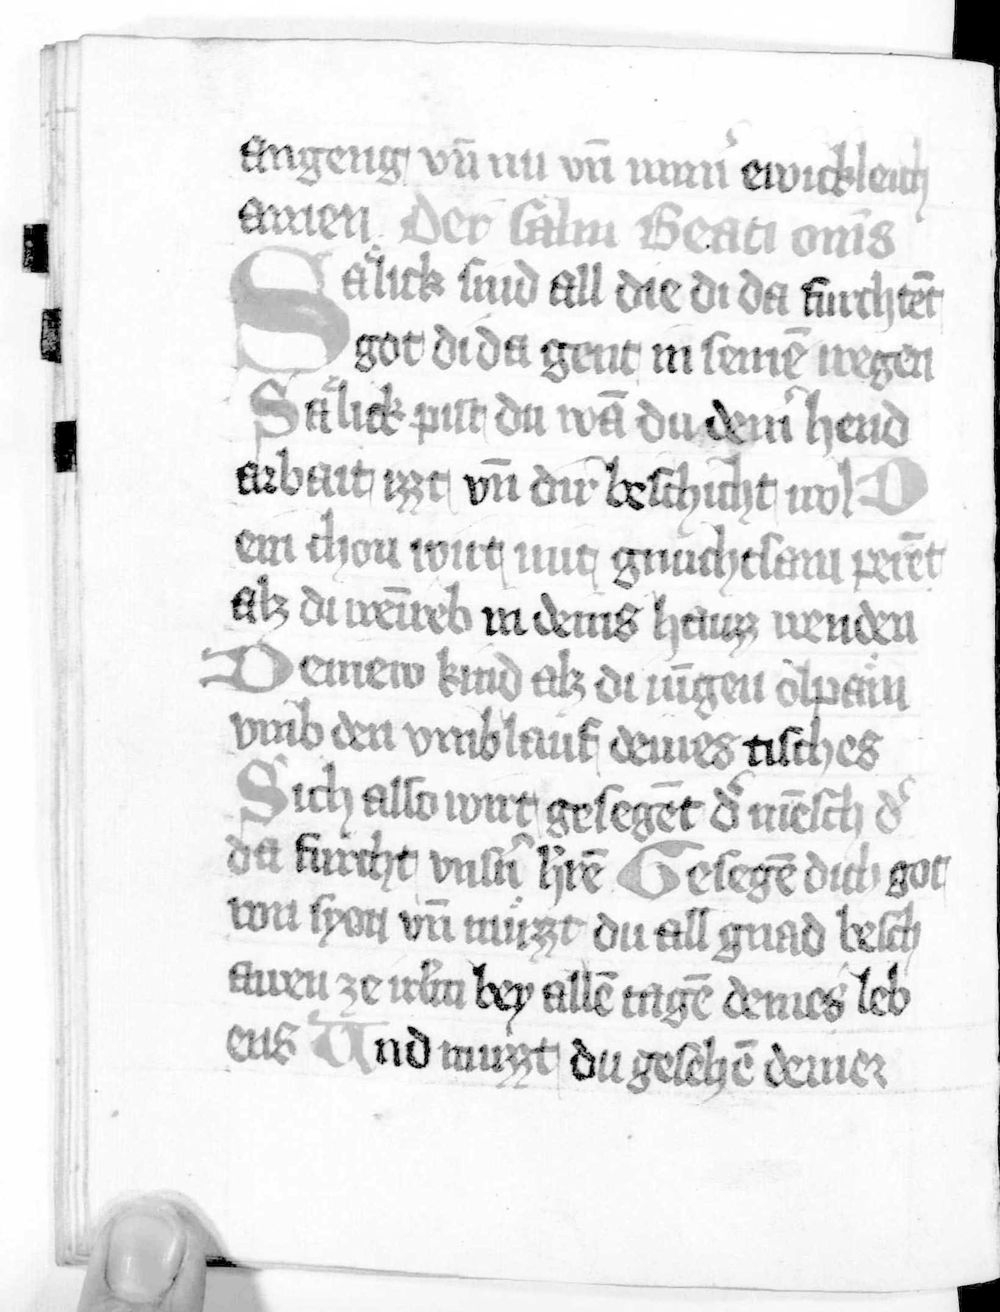 angeng vn̄ nu vn̄ mm̄ ewickleich
amen Der salm Beati om̄s
Sälick sind all die di da furchtēt
got di da gent in seinē wegen
Sälick pist du wā du dein͛ hend
arbait izzt vn̄ dir beschicht wol D
ein chon wirt mit gnuchtsam perēt
alz di wēīreb in deins hauz wenden
Deinew kind alz di iūgen ölpäm
vmb den vmblauf deines tisches
Sich also wirt gesegēt d͛ mēsch d͛
da furcht vnsn͛ h͛rē Gesegē dich got
von syon vn̄ müzzt du all gnad besch
awen ze irl͛m bey allē tagē deines leb
ens Und muzzt du gesehē deiner